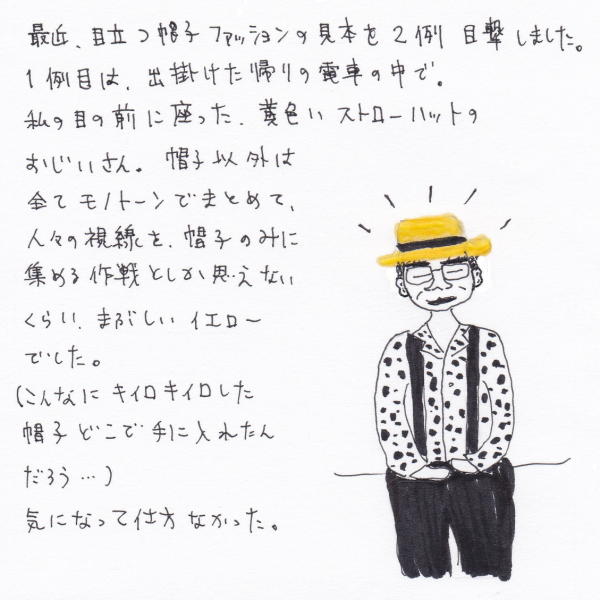 最近、目立つ帽子ファッションの見本を2例 目撃しました。
1例目は、出掛けた帰りの電車の中で。
私の目の前に座った、黄色い ストローハットの
おじいさん。 帽子以外は
全て モノトーンでまとめて、
人々の視線を、帽子のみに
集める作戦としか思えない
くらい、まぶしい イエロー
でした。
(こんなに キイロキイロした
帽子 どこで手に入れたん
だろう…)
気になって仕方なかった。